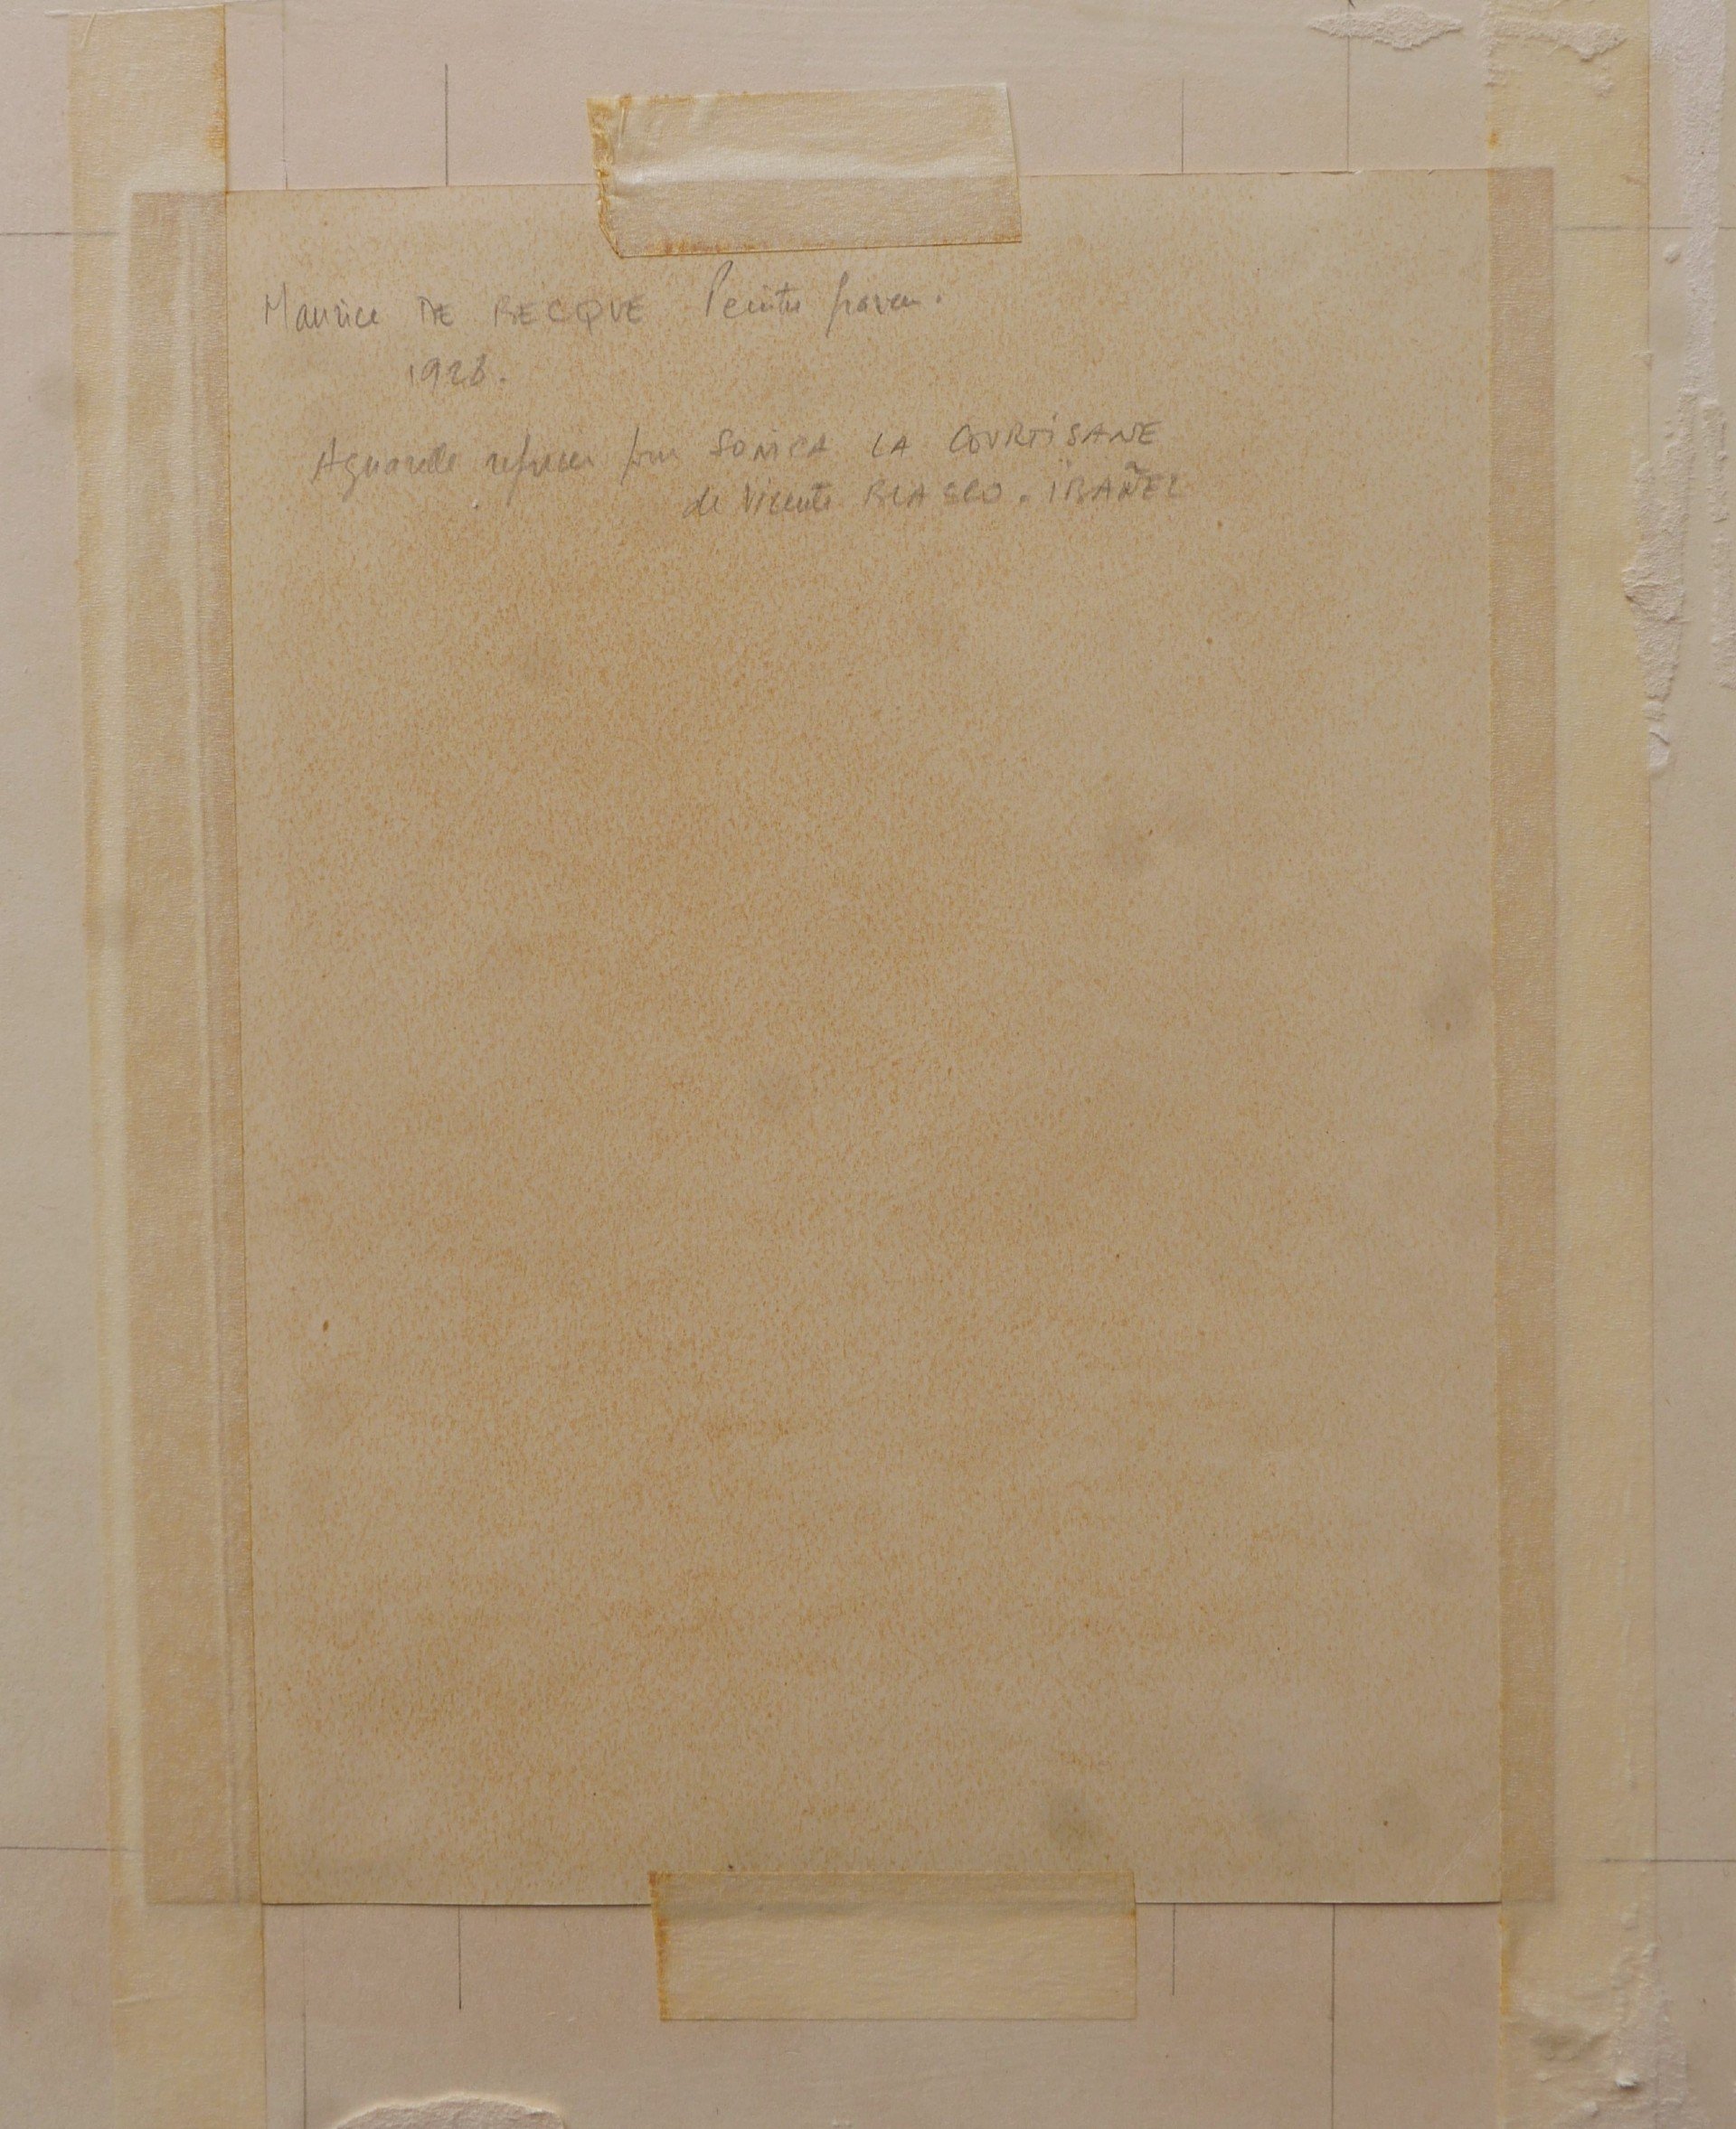 Maurice DE BECQUE Peintre graveur.
1928.
Aquarelle refusée pour SONICA LA COURTISANE
de Vicente BLASCO. IBAÑEZ